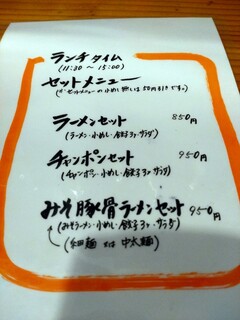 ランチタイム
(11:30 ~ 15:00)
セットメニュー
(セットメニューの小めし無しは50円引きです。)
ラーメンセット 850円
(ラーメン・小めし・餃子3ヶ・サラダ)
チャンポンセット 950円
(チャンポン・小めし・餃子3ヶ・サラダ)
みそ豚骨ラーメンセット 950円
(みそラーメン・小めし・餃子3ヶ・サラダ)
(細麺 又は 中太麺)